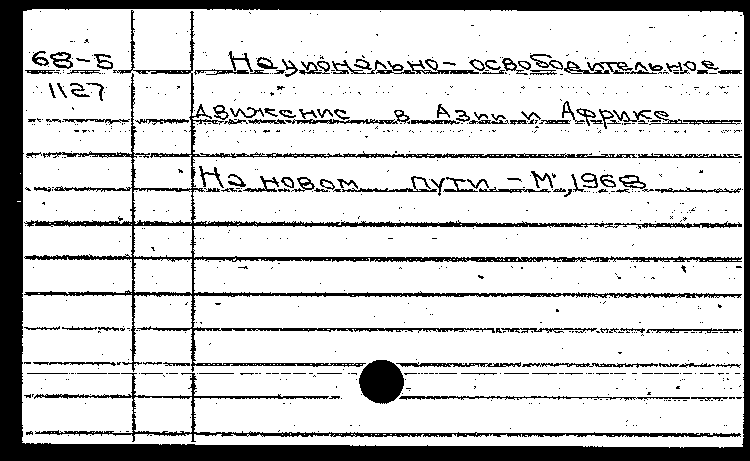 68-5 Национально-освободительное
1127
движение в Азии и Африке
На новом пути - М., 1968